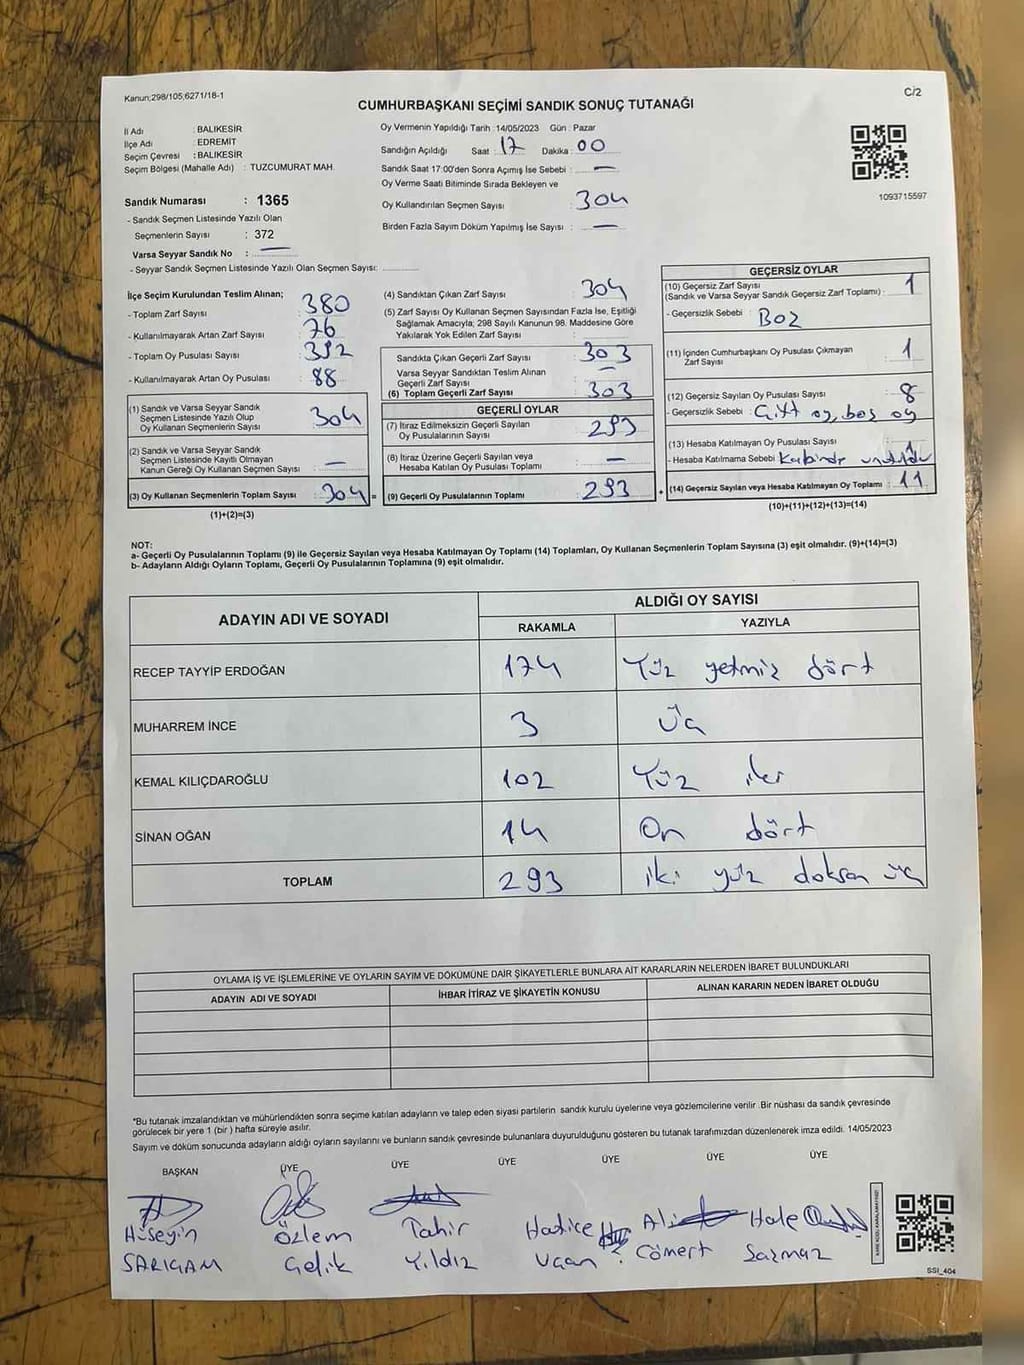 Kanun;298/105,6271/18-1
C/2
CUMHURBAŞKANI SEÇİMİ SANDIK SONUÇ TUTANAĞI
İl Adı : BALIKESİR
İlçe Adı : EDREMIT
Seçim Çevresi : BALIKESİR
Seçim Bölgesi (Mahalle Adı) : TUZCUMURAT MAH.
Sandık Numarası : 1365
- Sandık Seçmen Listesinde Yazılı Olan
Seçmenlerin Sayısı : 372
Varsa Seyyar Sandık No : —
- Seyyar Sandık Seçmen Listesinde Yazılı Olan Seçmen Sayısı:
Oy Vermenin Yapıldığı Tarih : 14/05/2023 Gün : Pazar
Sandığın Açıldığı Saat : 17 Dakika : 00
Sandık Saat 17:00'den Sonra Açımış İse Sebebi : —
Oy Verme Saati Bitiminde Sırada Bekleyen ve
Oy Kullandırılan Seçmen Sayısı : 304
Birden Fazla Sayım Döküm Yapılmış İse Sayısı : —
1093715597
İlçe Seçim Kurulundan Teslim Alınan;
- Toplam Zarf Sayısı : 380
- Kullanılmayarak Artan Zarf Sayısı : 76
- Toplam Oy Pusulası Sayısı : 392
- Kullanılmayarak Artan Oy Pusulası : 88
(1) Sandık ve Varsa Seyyar Sandık
Seçmen Listesinde Yazılı Olup
Oy Kullanan Seçmenlerin Sayısı : 304
(2) Sandık ve Varsa Seyyar Sandık
Seçmen Listesinde Kayıtlı Olmayan
Kanun Gereği Oy Kullanan Seçmen Sayısı : —
(3) Oy Kullanan Seçmenlerin Toplam Sayısı : 304 =
(1)+(2)=(3)
(4) Sandıktan Çıkan Zarf Sayısı : 304
(5) Zarf Sayısı Oy Kullanan Seçmen Sayısından Fazla İse, Eşitliği
Sağlamak Amacıyla; 298 Sayılı Kanunun 98. Maddesine Göre
Yakılarak Yok Edilen Zarf Sayısı :
Sandıkta Çıkan Geçerli Zarf Sayısı : 303
Varsa Seyyar Sandıktan Teslim Alınan
Geçerli Zarf Sayısı : —
(6) Toplam Geçerli Zarf Sayısı : 303
GEÇERLİ OYLAR
(7) İtiraz Edilmeksizin Geçerli Sayılan
Oy Pusulalarının Sayısı : 293
(8) İtiraz Üzerine Geçerli Sayılan veya
Hesaba Katılan Oy Pusulası Toplamı : —
(9) Geçerli Oy Pusulalarının Toplamı : 293 +
GEÇERSİZ OYLAR
(10) Geçersiz Zarf Sayısı
(Sandık ve Varsa Seyyar Sandık Geçersiz Zarf Toplamı) : 1
- Geçersizlik Sebebi : Boz
(11) İçinden Cumhurbaşkanı Oy Pusulası Çıkmayan
Zarf Sayısı : 1
(12) Geçersiz Sayılan Oy Pusulası Sayısı : 8
- Geçersizlik Sebebi : Çift oy, boş oy
(13) Hesaba Katılmayan Oy Pusulası Sayısı : 1
- Hesaba Katılmama Sebebi : Kabinde unutuldu
(14) Geçersiz Sayılan veya Hesaba Katılmayan Oy Toplamı : 11
(10)+(11)+(12)+(13)=(14)
NOT:
a- Geçerli Oy Pusulalarının Toplamı (9) ile Geçersiz Sayılan veya Hesaba Katılmayan Oy Toplamı (14) Toplamları, Oy Kullanan Seçmenlerin Toplam Sayısına (3) eşit olmalıdır. (9)+(14)=(3)
b- Adayların Aldığı Oyların Toplamı, Geçerli Oy Pusulalarının Toplamına (9) eşit olmalıdır.
ADAYIN ADI VE SOYADI
ALDIĞI OY SAYISI
RAKAMLA YAZIYLA
RECEP TAYYİP ERDOĞAN 174 Yüz yetmiş dört
MUHARREM İNCE 3 Üç
KEMAL KILIÇDAROĞLU 102 Yüz iki
SİNAN OĞAN 14 On dört
TOPLAM 293 iki yüz doksan üç
OYLAMA İŞ VE İŞLEMLERİNE VE OYLARIN SAYIM VE DÖKÜMÜNE DAİR ŞİKAYETLERLE BUNLARA AİT KARARLARIN NELERDEN İBARET BULUNDUKLARI
ADAYIN ADI VE SOYADI İHBAR İTİRAZ VE ŞİKAYETİN KONUSU ALINAN KARARIN NEDEN İBARET OLDUĞU
*Bu tutanak imzalandıktan ve mühürlendikten sonra seçime katılan adayların ve talep eden siyasi partilerin sandık kurulu üyelerine veya gözlemcilerine verilir .Bir nüshası da sandık çevresinde
görülecek bir yere 1 (bir ) hafta süreyle asılır.
Sayım ve döküm sonucunda adayların aldığı oyların sayılarını ve bunların sandık çevresinde bulunanlara duyurulduğunu gösteren bu tutanak tarafımızdan düzenlenerek imza edildi. 14/05/2023
BAŞKAN ÜYE ÜYE ÜYE ÜYE ÜYE ÜYE
Hüseyin Özlem Tahir Hatice Ali Hale
SARIÇAM Çelik Yıldız Uçan Cömert Sazmaz
SSI_404